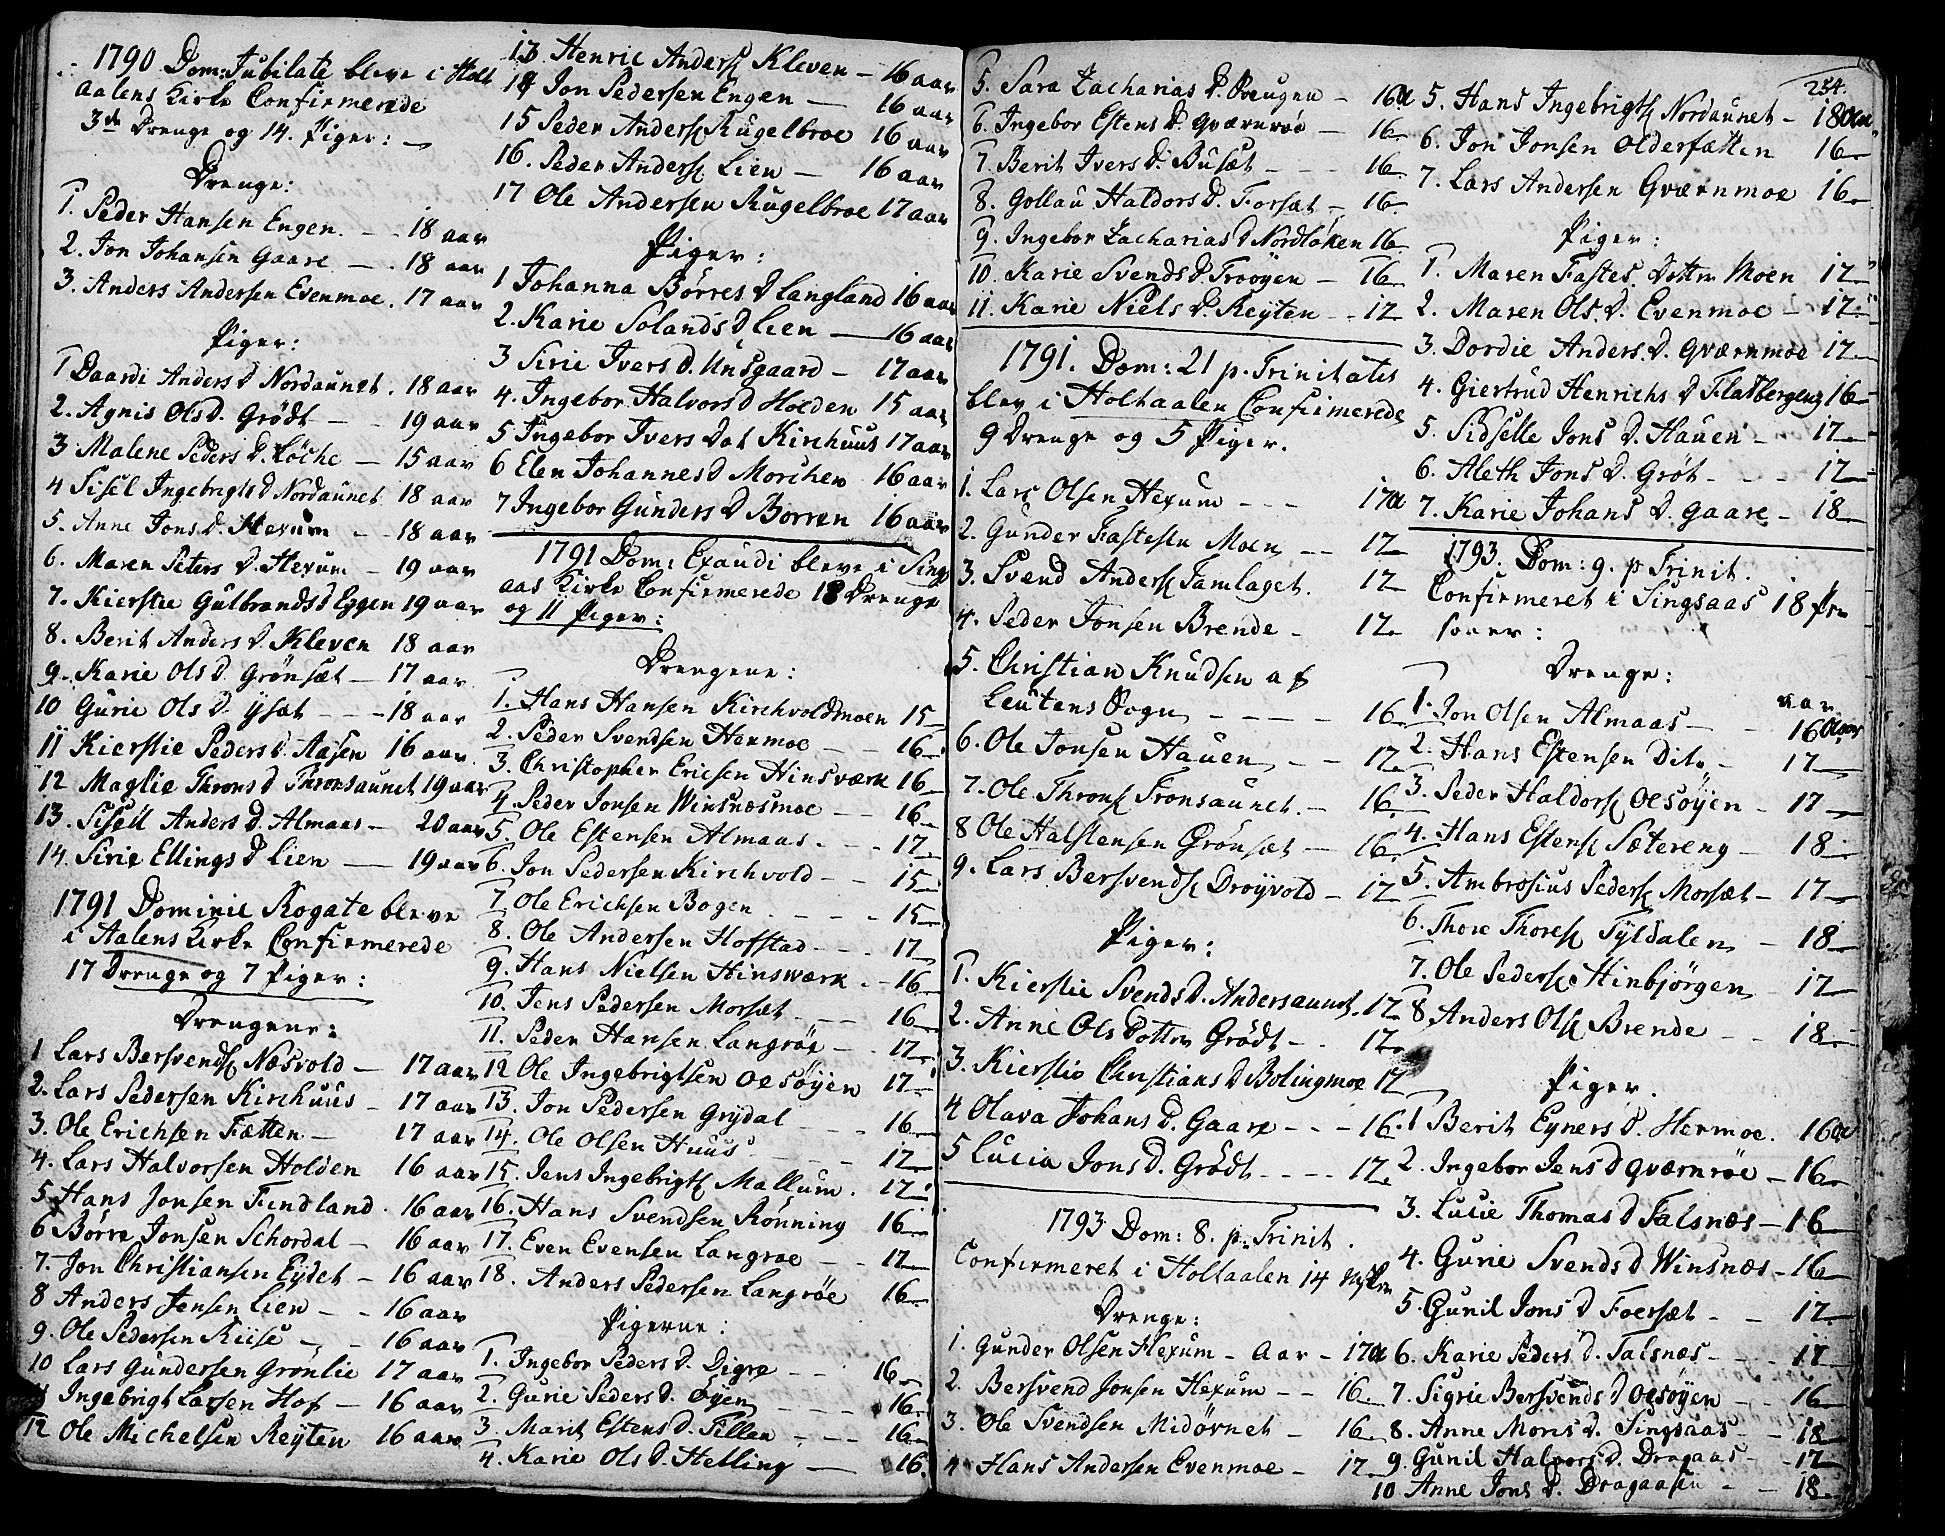 1790 Dom: Jubilate bleve i Holt
aalens Kirke Confirmerede
3de Drenge og 14. Piger:
Drenge:
1. Peder Hansen Engen - - 18 aar
2. Jon Johansen Gaare - 18 aar
3. Anders Andersen Evenmoe. 17 aar
Piger:
1 Daardi Anders D Nordaunet. 18 aar
2. Agnis Ols D. Grödt - - 19 aar
3 Malene Peders D. Löche - 15 aar
4 Sisel Ingebrigts D Nordaunet 18 aar
5. Anne Jons D. Hexum - - 18 aar
6. Maren Peters D. Hexum - 19 aar
7. Kierstie Gulbrands D Eggen 19 aar
8. Berit Anders D Kleven 18 aar
9. Karie Ols D. Grönsæt - 17 aar
10 Gurie Ols D. Ysat - - - 18 aar
11 Kierstie Peders D. Aasen 16 aar
12 Maglie Throns D Thronsaunet 19 aar
13. Sisell Anders D. Almaas - 20 aar
14. Sirie Ellings D Lien - 19 aar
1791 Dominic Rogate bleve
i Aalens Kirke Confirmerede
17 Drenge og 7 Piger:
Drengene:
1 Lars Bersvends Næsvold - 17 aar
2. Lars Pedersen Kirchuus - 17 aar
3. Ole Erichsen Fætten - 17 aar
4. Lars Halvorsen Holden 16 aar
5 Hans Jonsen Findland. 16 aar
6 Börre Jonsen Schordal - 16 aar
7. Jon Christiansen Eydet - 16 aar
8 Anders Jensen Lien - - 16 aar
9. Ole Pedersen Riise - 16 aar
10 Lars Gundersen Gronlie 17 aar
11 Ingebrigt Larsen Hof - 16 aar
12 Ole Michelsen Reyten 16 aar
13 Henric Anders Kleven - 16 aar
14 Jon Pedersen Engen - 16 aar
15 Peder Anders Kugelbroe 16 aar
16. Peder Anders Lien - 16 aar
17 Ole Andersen Kugelbroe 17 aar
Piger:
1 Johanna Börres D Langland 16 aar
2. Karie Solands D Lien - 16 aar
3 Sirie Ivers D. Unsgaard - 17 aar
4. Ingebor Halvors D Holden 15 aar
5 Ingebor Ivers Dat Kirchuus 17 aar
6 Elen Johannes D Morchen 16 aar
7 Ingebor Gunders D Borren 16 aar
1791 Dom: Exaudi bleve i Sings
aas Kirke Confirmerede 18 Drenge
og 11 Piger:
Drengene:
1. Hans Hansen Kirchvoldmoen 15
2. Peder Svendsen Hermoe - - 16
3. Christopher Ericsen Hinsværk 16
4. Peder Jonsen Winsnæsmoe - - 16
5. Ole Estensen Almaas. - - 17
6. Jon Pedersen Kirchvold - - 15
7. Ole Erichsen Bogen - - - 15
8. Ole Andersen Hofstad - - 17
9. Hans Nielsen Hinswærk - - 16
10. Jens Pedersen Morsæt - - 16
11. Peder Hansen Langröe - - 17
12 Ole Ingebrigtsen Oesöyen 17
13. Jon Pedersen Grydal - - - 16
14. Ole Olsen Huus - - 17
15. Jens Ingebrigts Mallum. 17
16. Hans Svendsen Rönning 16
17. Even Evensen Langroe - - 17
18. Anders Pedersen Langröe 16
Pigerne:
1. Ingebor Peders D. Digre - - 16
2. Gurie Peders D. Öyen - - - 16
3. Marit Estens D. Tillen - - - 16
4. Karie Ols D. Helling - 16
5. Sara Zacharias D. Svengen - 16 a
6. Ingebor Estens D. Qværnröe - 16
7. Berit Ivers D. Busæt - - - 16
8. Gollau Haldors D. Forsæt - 16
9. Ingebor Zacharias D Nordlöken 16
10. Karie Svends D. Froöyen - 16
11. Karie Niels D. Reyten - - 17
1791. Dom: 21 p. Trinitatis
blev i Holtaalen Confirmerede
9 Drenge og 5 Piger.
1. Lars Olsen Hexum - - - 17 a
2. Gunder Fastesen Moen - - 17
3. Svend Anders Tamlaget. 17
4. Peder Jonsen Brende - 17
5. Christian Knudsen af
Leutens Sogn - - - - 16
6. Ole Jonsen Hauen - - 17
7. Ole Throns Tronsaunet. - 16
8 Ole Halstensen Grönsæt - 16
9. Lars Bersvends Droyvold - 17
Piger:
1. Kierstie Svends D. Andersaunet. 17
2. Anne Ols Dotter Grödt - - 17
3. Kierstie Christians D Bolingmoe 17
4 Olava Johans D. Gaare - - - 16
5 Lucia Jons D. Grödt - - - - 17
1793 Dom: 8. p. Trinit.
Confirmeret i Holtaalen 14
Drenge:
1. Gunder Olsen Hexum - Aar - 17 a
2. Bersvend Jonsen Hexum - - 16
3. Ole Svendsen Midövnet - 16
4. Hans Andersen Evenmoe - 17
254.
5. Hans Ingebrigts Nordaunet - 18
6. Jon Jonsen Olderfætten 16
7. Lars Andersen Gværnmoe 16
Piger:
1. Maren Fastes Dotter Moen 17
2. Maren Ols. D. Evenmoe - 17
3. Dordie Anders D. Gværnmoe 17
4. Giertrud Henrichs D Flatbergeng 16
5. Sidselle Jons D. Hauen - 17
6. Aleth Jons D. Gröt - - - 17
7. Karie Johans D. Gaare - 18
1793. Dom: 9. p Trinit.
Confirmeret i Singsaas 18 Per
soner:
Drenge:
aar
1. Jon Olsen Almaas - - 16
2. Hans Estensen Dito - 17
3. Peder Haldors Oesöyen - 17
4. Hans Estens Sætereng - 18
5. Ambrosius Peders Morsæt - 17
6. Thore Thores Tyldalen - 18
7. Ole Peders Hinbjörgen 17
8. Anders Ols Brende - - 18
Piger.
1 Berit Eyners D. Hermoe. 16
2. Ingebor Jens D Qværnröe - 16
3. Lucie Thomas D Talsnæs - 16
4. Gurie Svends D Winsnæs - 16
5. Gunil Jons D Foersæt - - 17
6. Karie Peders D. Talsnæs - - - 17
7. Sigrie Bersvends D Oesöyen - 16
8. Anne Mons D. Singsaas - - 18
9. Gunil Halvors D. Dragaas - 17
10 Anne Jons D. Dragaasen - - 18